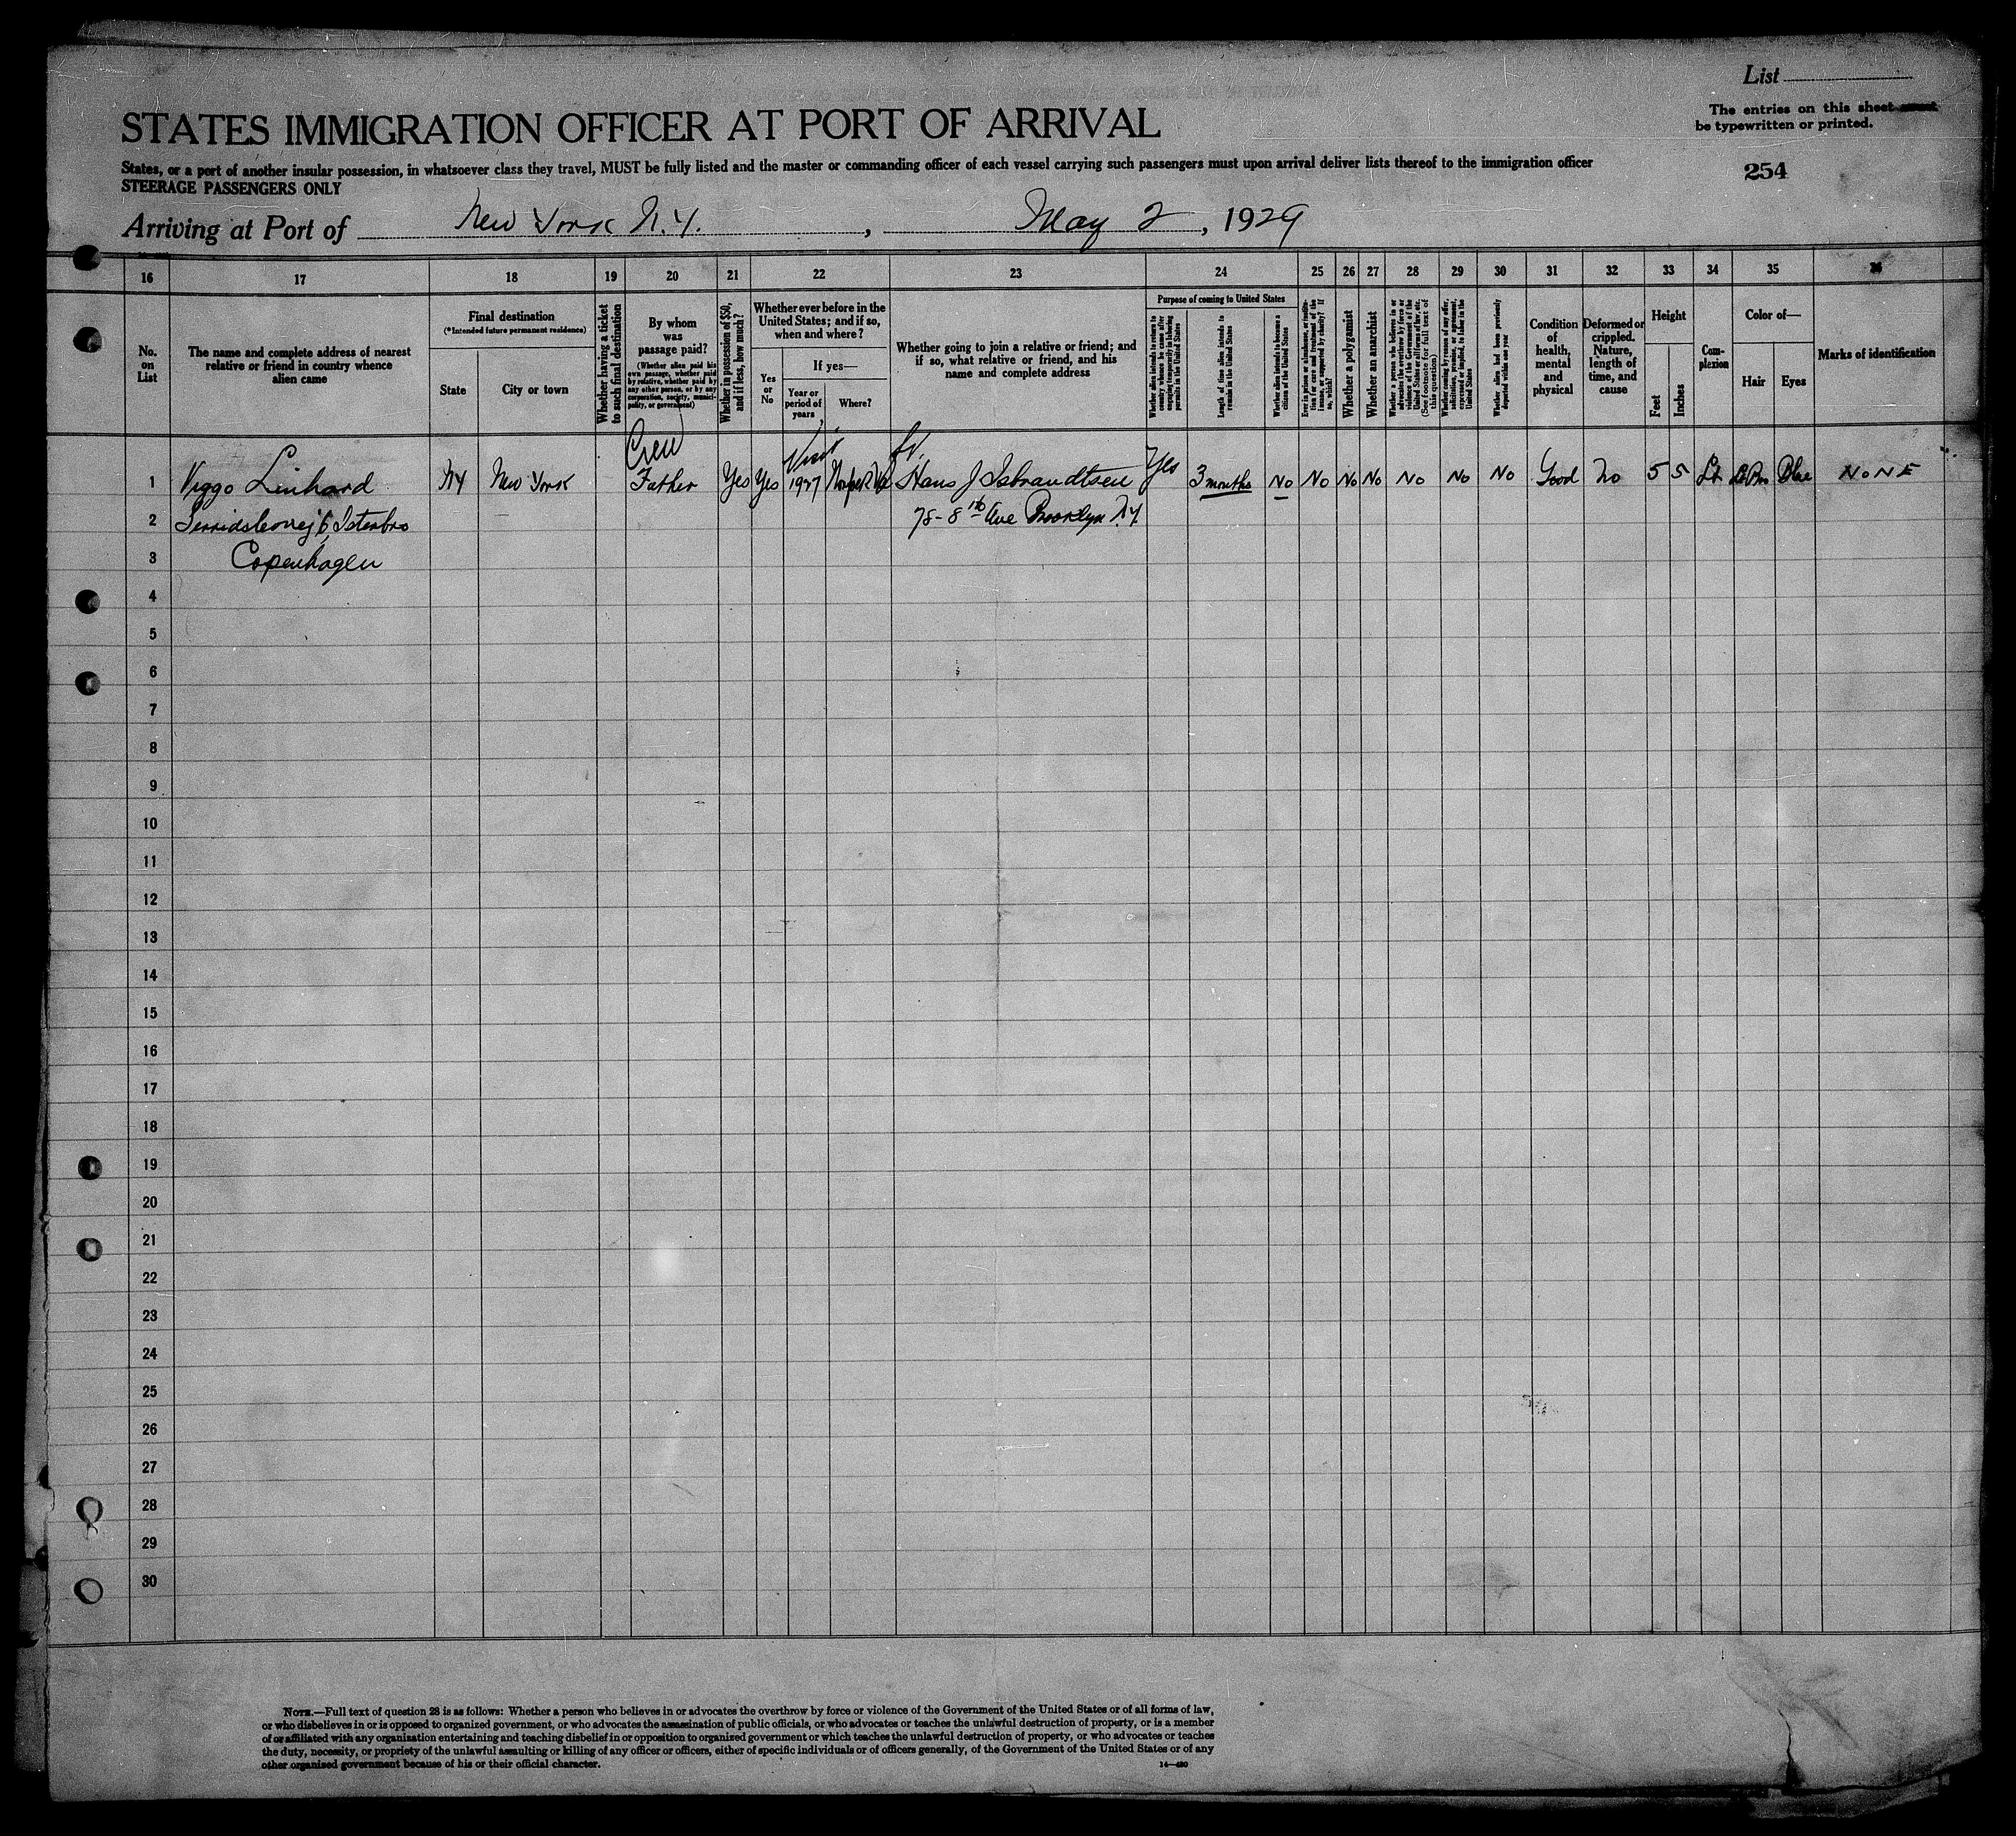 List
The entries on this sheet must
be typewritten or printed.
STATES IMMIGRATION OFFICER AT PORT OF ARRIVAL
254
States, or a port of another insular possession, in whatsoever class they travel, MUST be fully listed and the master or commanding officer of each vessel carrying such passengers must upon arrival deliver lists thereof to the immigration officer
STEERAGE PASSENGERS ONLY
Arriving at Port of New York N.Y. , May 2, 1929
16 17 18 19 20 21 22 23 24 25 26 27 28 29 30 31 32 33 34 35 36
No.
on
List
The name and complete address of nearest
relative or friend in country whence
alien came
Final destination
(*Intended future permanent residence)
State
City or town
Whether having a ticket
to such final destination
By whom
was
passage paid?
(Whether alien paid his
own passage, whether paid
by relative, whether paid by
any other person, or by any
corporation, society, munici-
pality, or government)
Whether in possession of $50,
and if less, how much?
Whether ever before in the
United States; and if so,
when and where?
Yes
or
No
If yes—
Year or
period of
years
Where?
Whether going to join a relative or friend; and
if so, what relative or friend, and his
name and complete address
Purpose of coming to United States
Whether alien intends to return to
country whence he came after
engaging temporarily in laboring
pursuits in the United States
Length of time alien intends to
remain in the United States
Whether alien intends to become a
citizen of the United States
Ever in prison or almshouse, or institu-
tion for care and treatment of the
insane, or supported by charity? If
so, which?
Whether a polygamist
Whether an anarchist
Whether a person who believes in or
advocates the overthrow by force or
violence of the Government of the
United States or all forms of law, etc.
(See footnote for full text of
this question)
Whether coming by reason of any offer,
solicitation, promise, or agreement,
expressed or implied, to labor in the
United States
Whether alien had been previously
deported within one year
Condition
of
health,
mental
and
physical
Deformed or
crippled.
Nature,
length of
time, and
cause
Height
Feet
Inches
Com-
plexion
Color of—
Hair
Eyes
Marks of identification
Crew Visit
1 Viggo Linhard NY New York Father Yes Yes 1927 Hans J Isbrandtsen Yes 3 months No No No No No No No Good No 5 5 Lt Blue NONE
2 78-8th Ave Brooklyn N.Y.
3 Copenhagen
4
5
6
7
8
9
10
11
12
13
14
15
16
17
18
19
20
21
22
23
24
25
26
27
28
29
30
NOTE.—Full text of question 28 is as follows: Whether a person who believes in or advocates the overthrow by force or violence of the Government of the United States or of all forms of law,
or who disbelieves in or is opposed to organized government, or who advocates the assassination of public officials, or who advocates or teaches the unlawful destruction of property, or is a member
of or affiliated with any organization entertaining and teaching disbelief in or opposition to organized government or which teaches the unlawful destruction of property, or who advocates or teaches
the duty, necessity, or propriety of the unlawful assaulting or killing of any officer or officers, either of specific individuals or of officers generally, of the Government of the United States or of any
other organized government because of his or their official character.
14—480